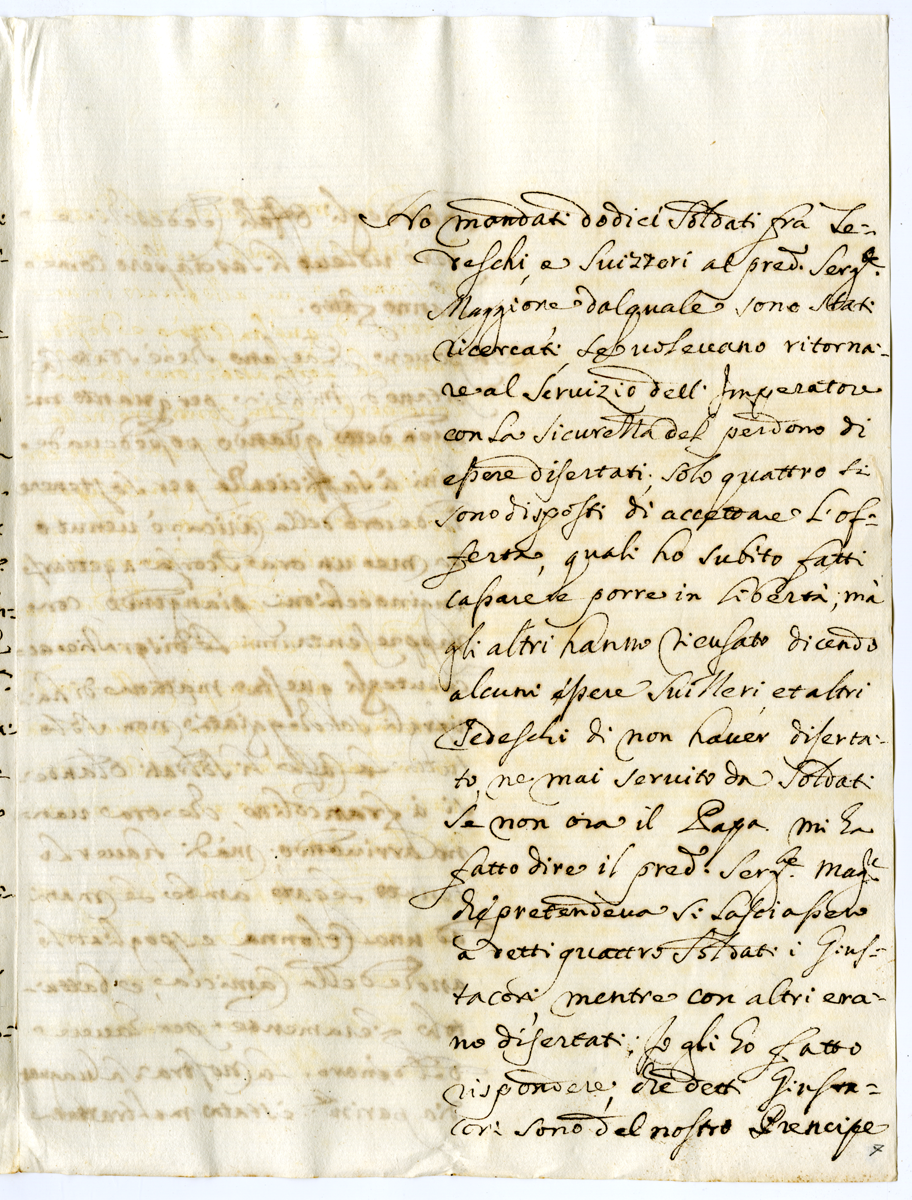 Ho mandati dodici Soldati frà Te-
deschi, e Suizzeri al pred.º Serg.te
Maggiore dal quale sono stati
ricercati, se uoleuano ritorna-
re al Seruizio dell' Imperatore
con la sicurezza del perdono di
essere disertati; solo quattro si
sono disposti di accettare l'of-
ferta, quali ho subito fatti
cassare e porre in libertà, mà
gli altri hanno ricusato dicendo
alcuni essere Suizzeri, et altri
Tedeschi di non hauer diserta-
to, ne mai seruito da Soldati
se non ora il Papa. mi ha
fatto dire il pred.º Serg.te Mag.re
che pretendeua si lasciassero
à detti quattro Soldati i Gius-
tacori, mentre con altri era-
no disertati; Io gli ho fatto
rispondere, che detti Giusta-
cori sono del nostro Prencipe